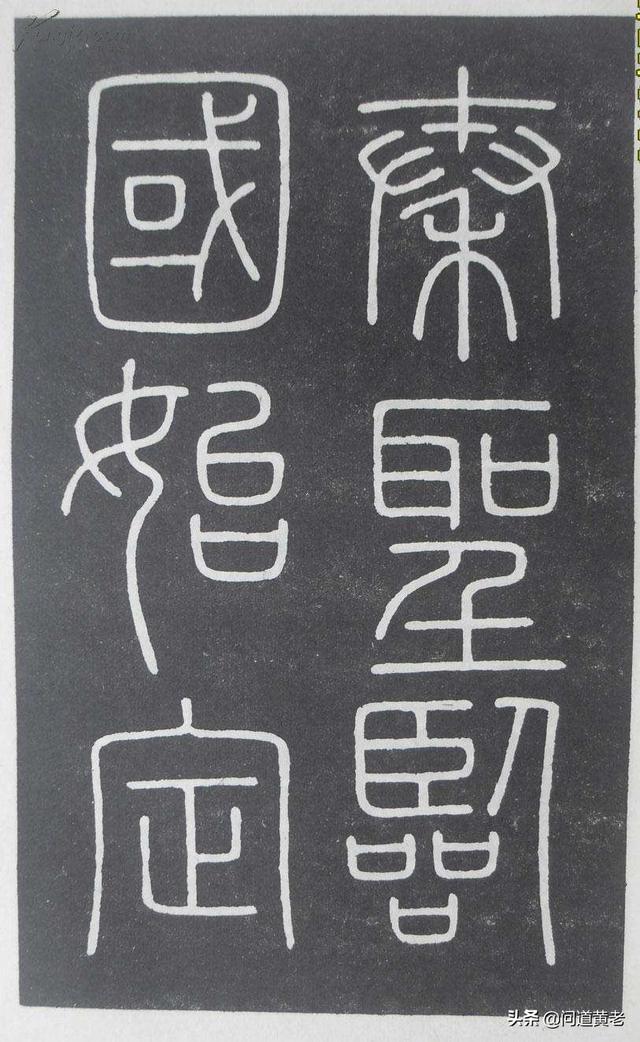 秦聖臨
國始定
头条 @问道黄老